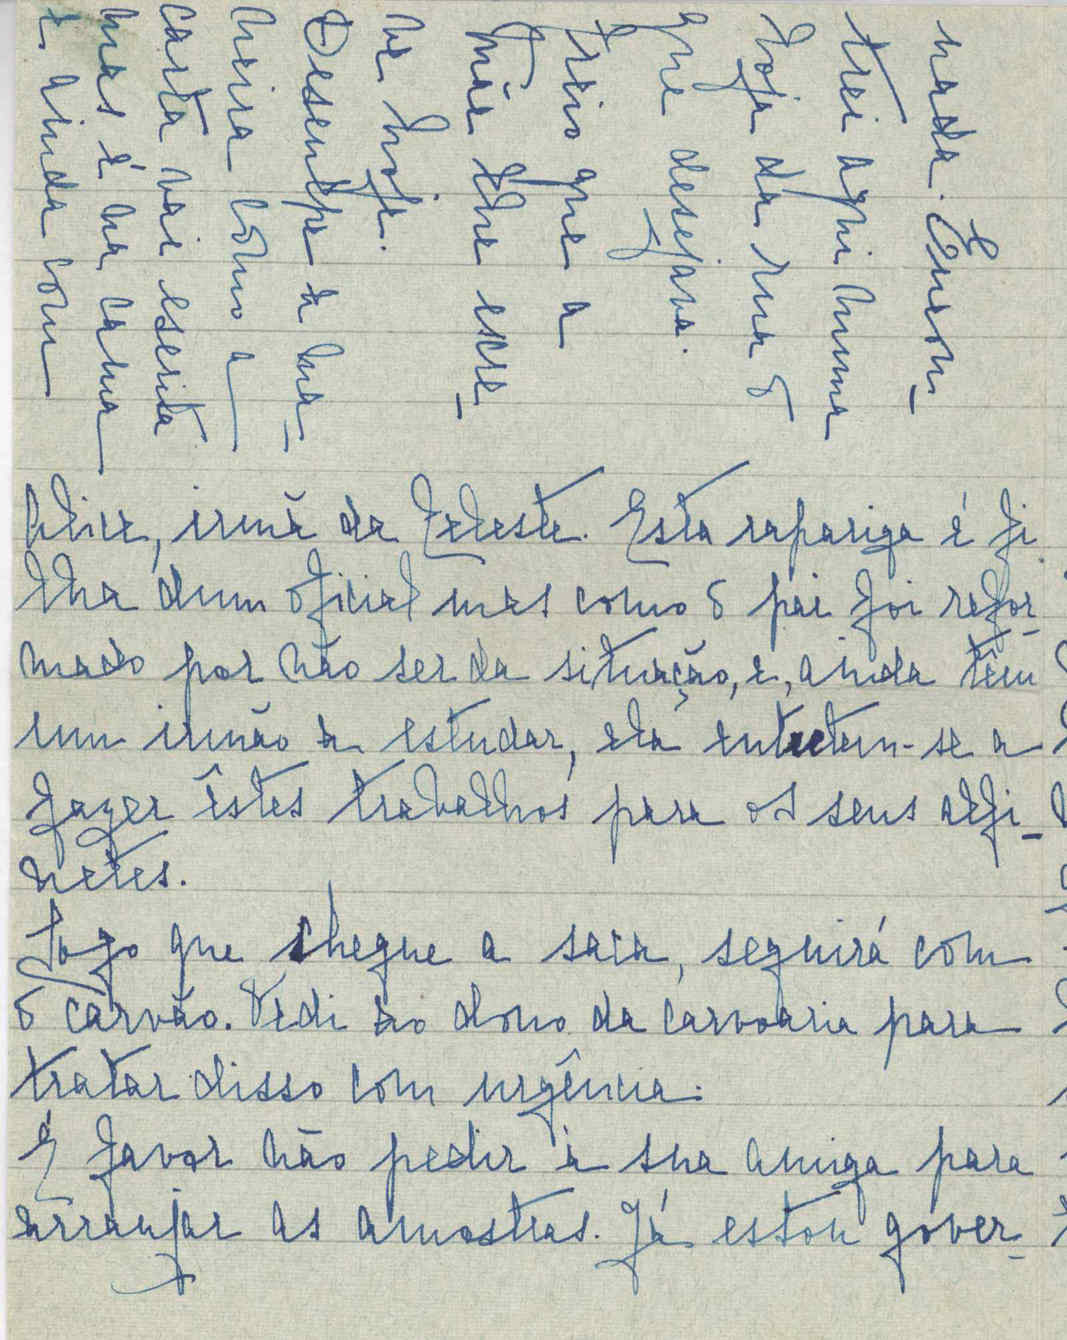 Alice, irmã da Celeste. Esta rapariga é fi
lha dum oficial mas como o pai foi refor-
mado por não ser da situação, e, ainda têm
um irmão a estudar, ela entretem-se a
fazer êstes trabalhos para os seus alfi-
netes.
Logo que chegue a saca, seguirá com
o carvão. Pedi ao dono da carvoaria para
tratar disso com urgência.
É favor não pedir à sua amiga para
arranjar as amostras. Já estou gover-
nada. Encon-
trei aqui numa
loja da rua o
que desejava.
Creio que a
mãe lhe escre-
ve hoje.
Desculpe a ma-
neira como a
carta vai escrita
mas é na cama
e ainda com